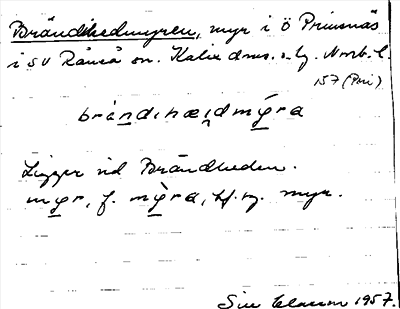 Brändihedmyren, myr i ö Prinsnäs
i sv Råneå sn. Kalix dms. o. tg. Norrb. l.
157 (Pri)
brändihæịdmỳra
Ligger vid Brändheden.
myr, f. mỳra, bf. sg. myr.
Siv Classon 1957.